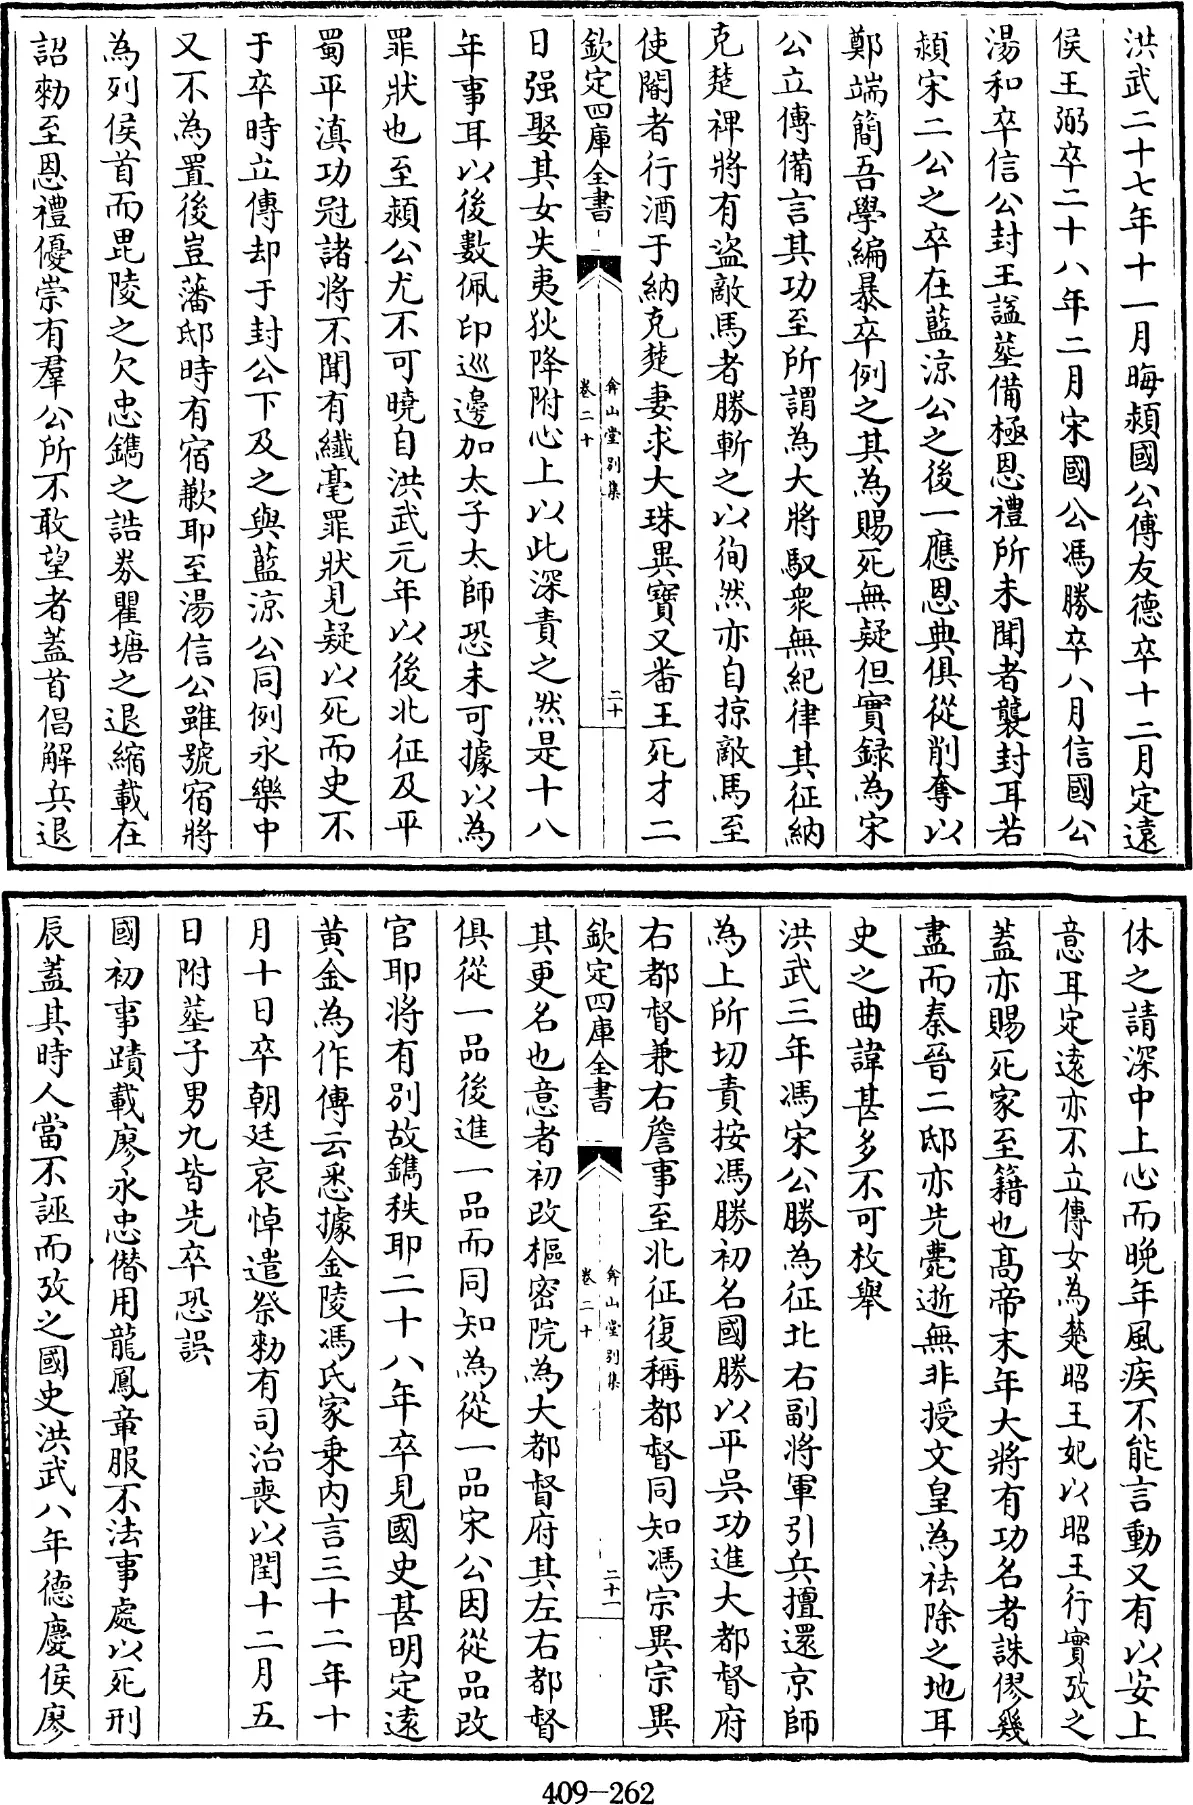 洪武二十七年十一月晦潁國公傅友德卒十二月定遠
侯王弼卒二十八年二月宋國公馮勝卒八月信國公
湯和卒信公封王諡塟備極恩禮所未聞者襲封耳若
潁宋二公之卒在藍涼公之後一應恩典俱從削奪以
鄭端簡吾學編暴卒例之其為賜死無疑但實録為宋
公立傳備言其功至所謂為大將馭衆無紀律其征納
克楚禆將有盜敵馬者勝斬之以徇然亦自掠敵馬至
使閽者行酒于納克楚妻求大珠異寳又畨王死才二
欽定四庫全書
弇山堂别集
卷二十
二十
日强娶其女失夷狄降附心上以此深責之然是十八
年事耳以後數佩印巡邊加太子太師恐未可據以為
罪狀也至潁公尤不可曉自洪武元年以後北征及平
蜀平滇功冠諸將不聞有纎毫罪狀見疑以死而史不
于卒時立傳却于封公下及之與藍涼公同例永樂中
又不為置後豈藩邸時有宿歉耶至湯信公雖號宿將
為列侯首而毘陵之欠忠鐫之誥劵瞿塘之退縮載在
詔勅至恩禮優崇有羣公所不敢望者蓋首倡解兵退
休之請深中上心而晚年風疾不能言動又有以安上
意耳定遠亦不立傳女為楚昭王妃以昭王行實攷之
蓋亦賜死家至籍也髙帝末年大將有功名者誅僇幾
盡而秦晉二邸亦先薨逝無非授文皇為祛除之地耳
史之曲諱甚多不可枚舉
洪武三年馮宋公勝為征北右副將軍引兵擅還京師
為上所切責按馮勝初名國勝以平呉功進大都督府
右都督兼右詹事至北征復稱都督同知馮宗異宗異
欽定四庫全書
弇山堂别集
卷二十
二十一
其更名也意者初改樞密院為大都督府其左右都督
俱從一品後進一品而同知為從一品宋公因從品改
官耶將有别故鐫秩耶二十八年卒見國史甚明定遠
黄金為作傳云悉據金陵馮氏家乗内言三十二年十
月十日卒朝廷哀悼遣祭勅有司治喪以閏十二月五
日附塟子男九皆先卒恐誤
國初事蹟載廖永忠僭用龍鳳章服不法事處以死刑
辰蓋其時人當不誣而攷之國史洪武八年德慶侯廖
409-262